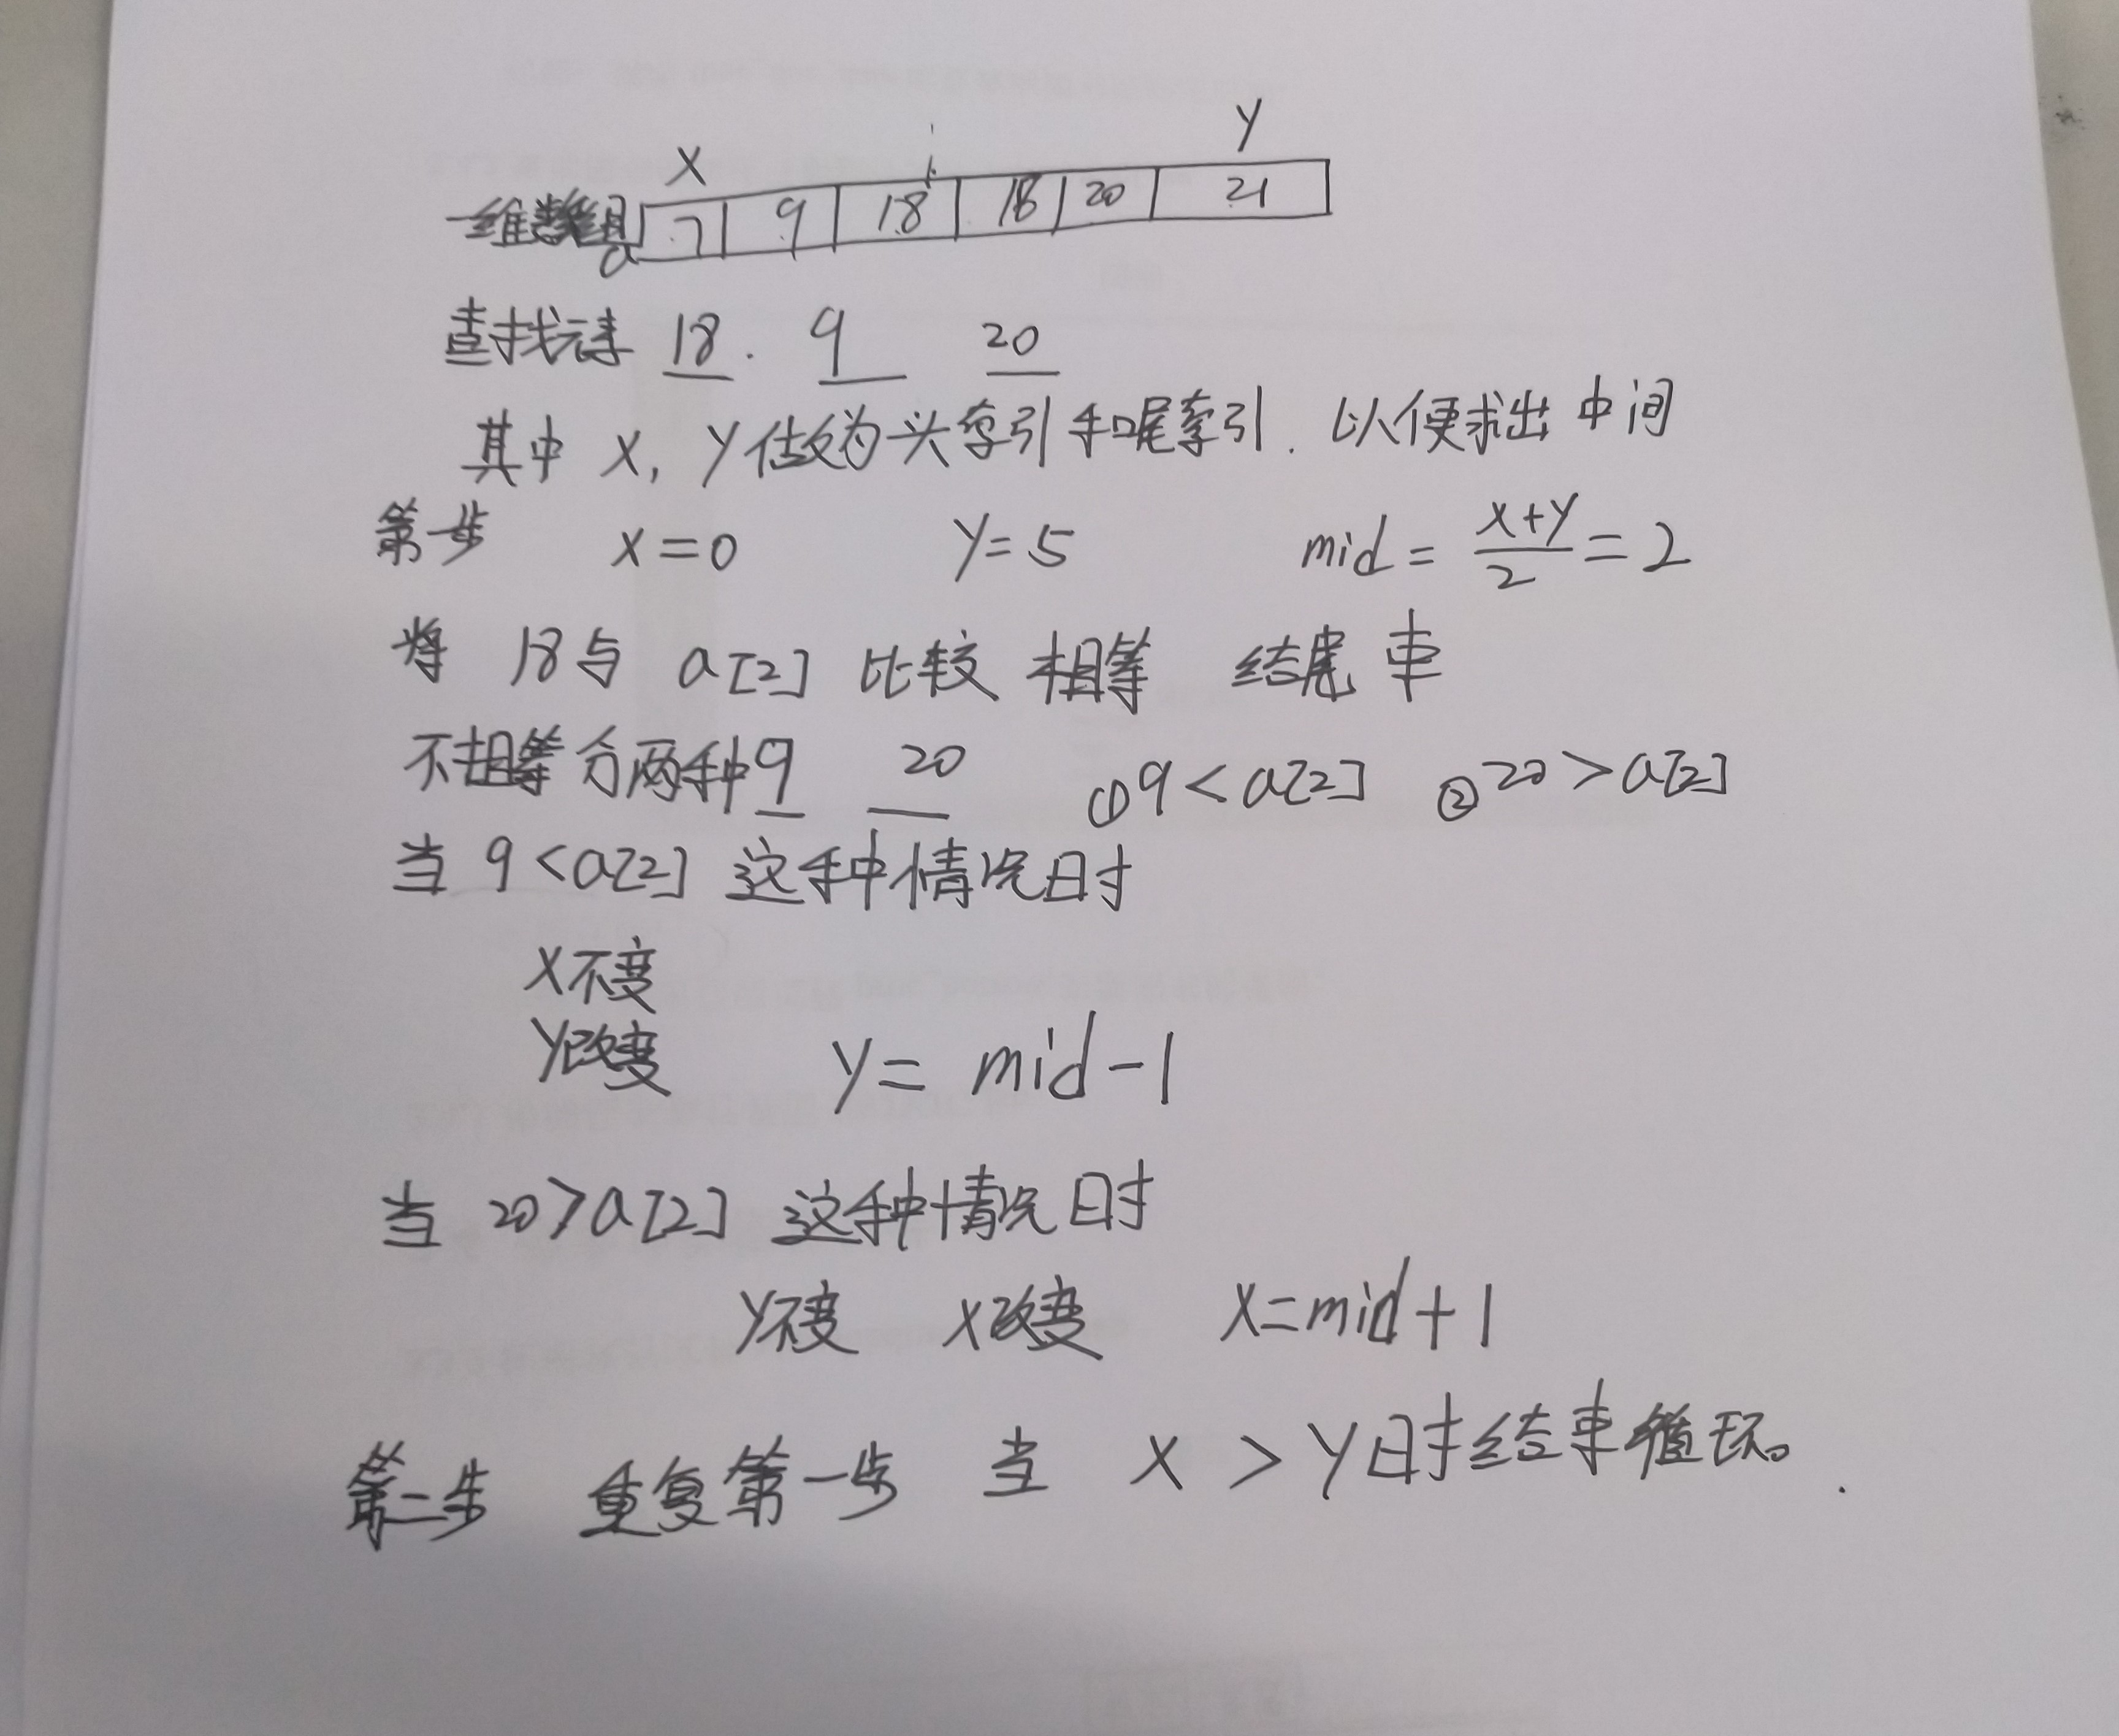 X Y
一维数组a 7 9 18 18 20 21
查找元素 18. 9 20
其中 X, Y做为头索引和尾索引. 以便求出 中间
第一步 X=0 Y=5 mid = \frac{X+Y}{2} = 2
将 18与 a[2] 比较 相等 结 束
不相等分两种 9 20 ①9<a[2] ②20>a[2]
当 9<a[2] 这种情况时
X不变
Y改变 Y= mid-1
当 20>a[2] 这种情况时
Y不变 X改变 X=mid+1
第二步 重复第一步 当 X > Y时结束循环。